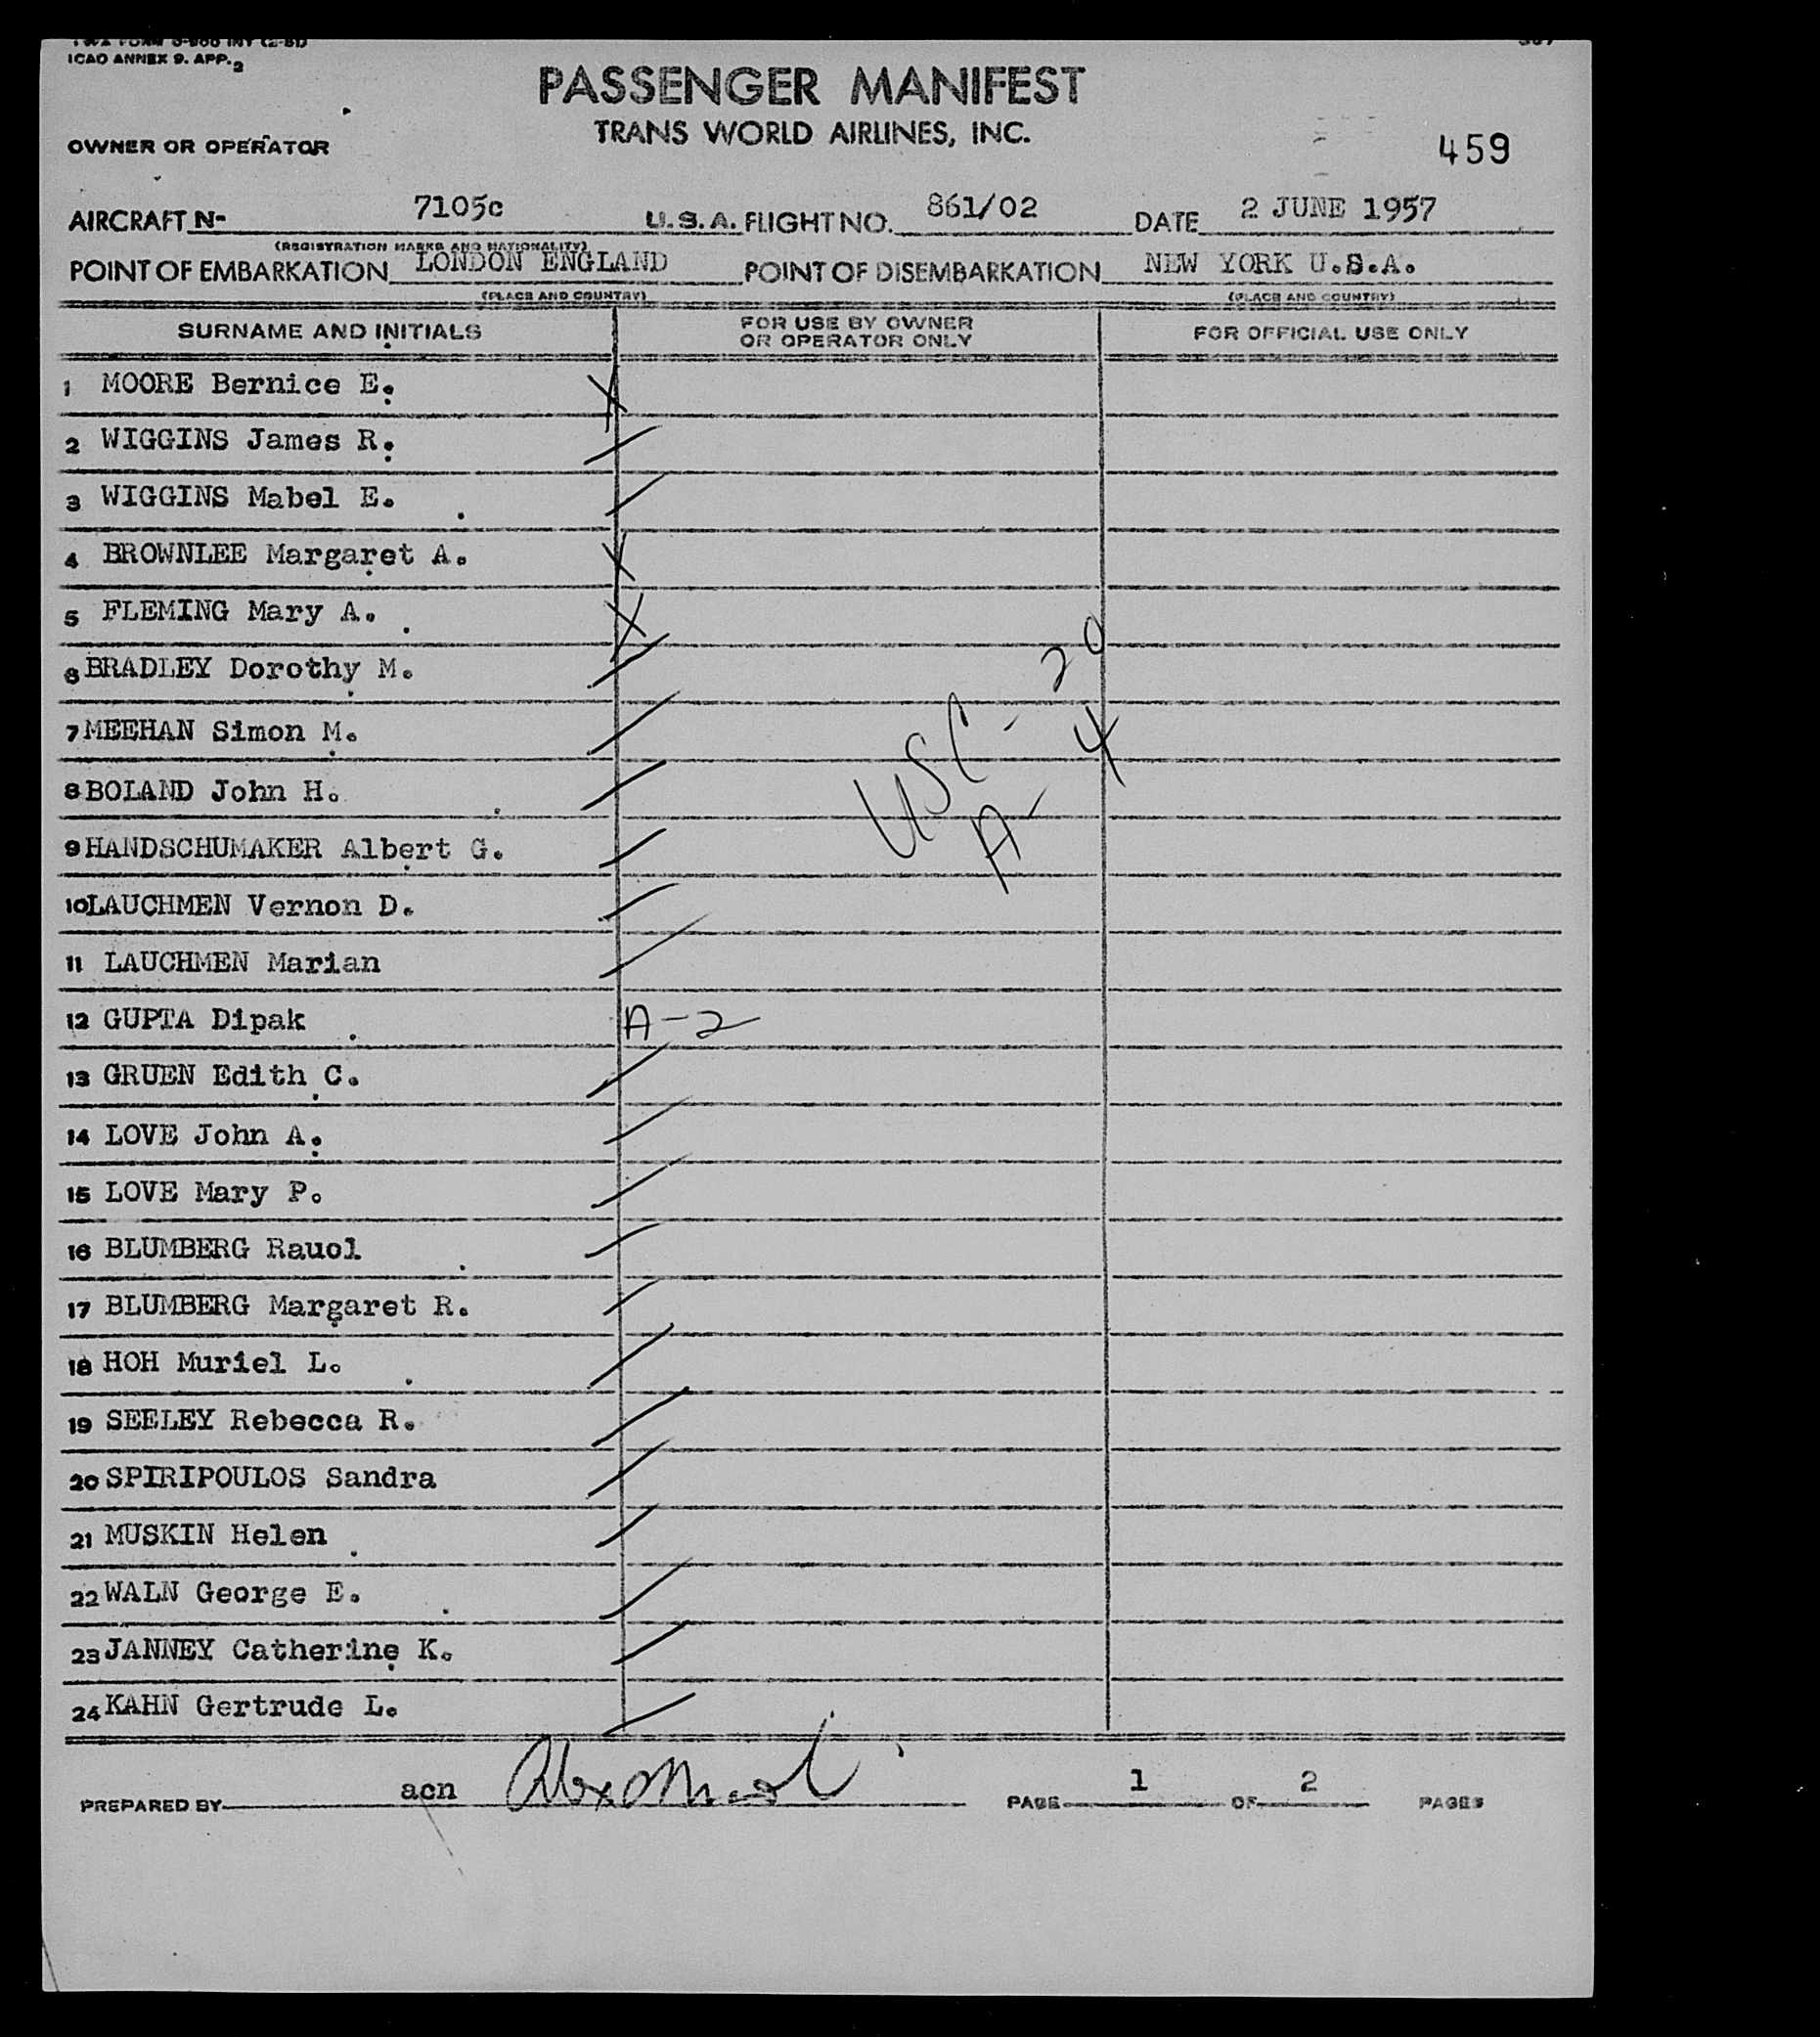 ICAO ANNEX 9. APP. 2
PASSENGER MANIFEST
TRANS WORLD AIRLINES, INC.
OWNER OR OPERATOR
459
AIRCRAFT N- 7105c U.S.A. FLIGHT NO. 861/02 DATE 2 JUNE 1957
(REGISTRATION MARKS AND NATIONALITY)
POINT OF EMBARKATION LONDON ENGLAND POINT OF DISEMBARKATION NEW YORK U.S.A.
(PLACE AND COUNTRY) (PLACE AND COUNTRY)
SURNAME AND INITIALS FOR USE BY OWNER OR OPERATOR ONLY FOR OFFICIAL USE ONLY
1 MOORE Bernice E.
2 WIGGINS James R.
3 WIGGINS Mabel E.
4 BROWNLEE Margaret A.
5 FLEMING Mary A.
6 BRADLEY Dorothy M.
7 MEEHAN Simon M.
8 BOLAND John H.
USC - 20
A - 4
9 HANDSCHUMAKER Albert G.
10 LAUCHMEN Vernon D.
11 LAUCHMEN Marian
12 GUPTA Dipak A-2
13 GRUEN Edith C.
14 LOVE John A.
15 LOVE Mary P.
16 BLUMBERG Rauol
17 BLUMBERG Margaret R.
18 HOH Muriel L.
19 SEELEY Rebecca R.
20 SPIRIPOULOS Sandra
21 MUSKIN Helen
22 WALN George E.
23 JANNEY Catherine K.
24 KAHN Gertrude L.
PREPARED BY acn PAGE 1 OF 2 PAGES